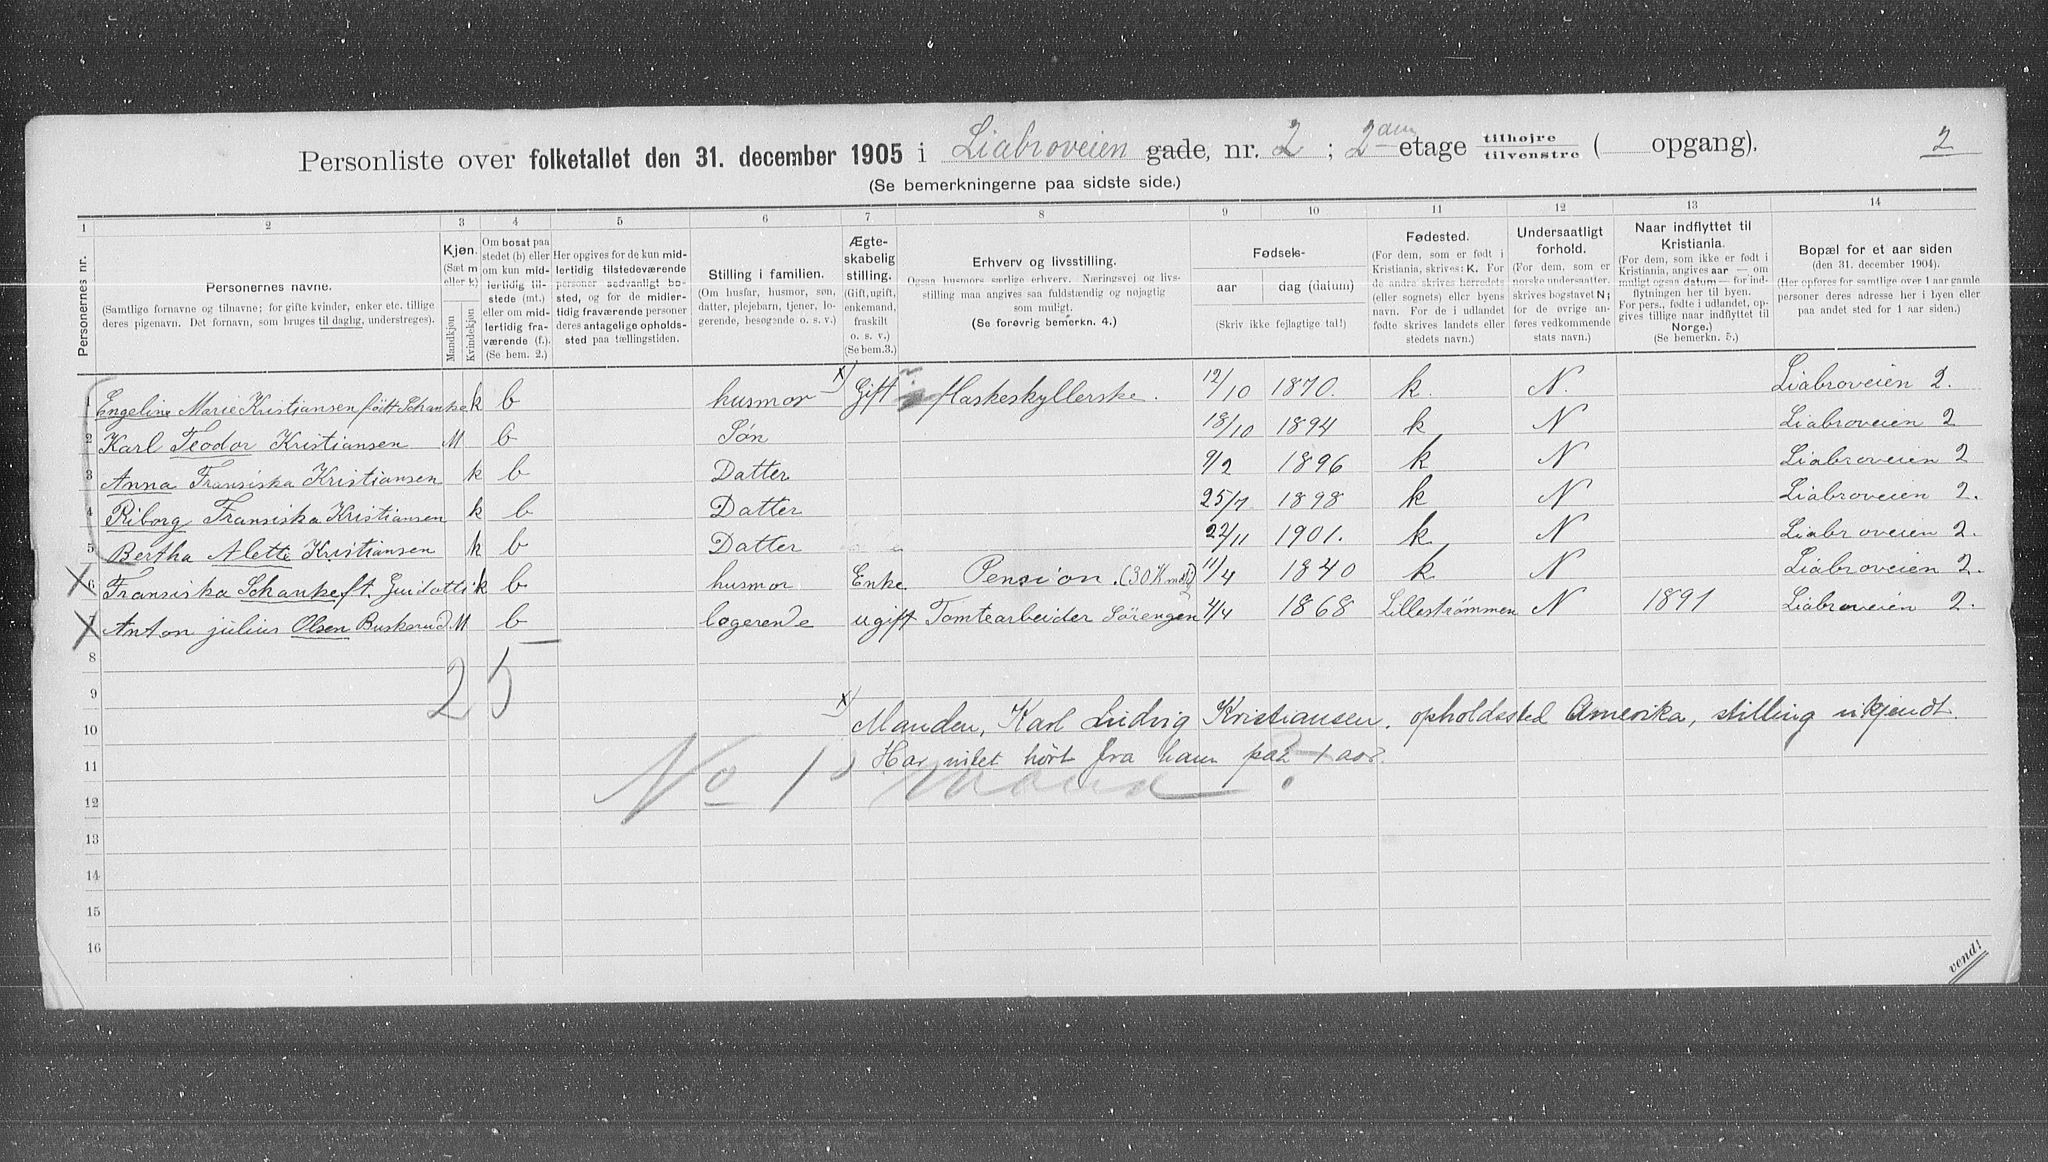 Personliste over folketallet den 31. december 1905 i Liabroveien gade, nr. 2 ; 2den etage tilhøjre / tilvenstre ( opgang). 2
(Se bemerkningerne paa sidste side.)
1 2 3 4 5 6 7 8 9 10 11 12 13 14
Personernes nr.
Personernes navne.
(Samtlige fornavne og tilnavne; for gifte kvinder, enker etc. tillige deres pigenavn. Det fornavn, som bruges til daglig, understreges).
Kjøn.
(Sæt m eller k)
Mandkjøn
Kvindekjøn
Om bosat paa stedet (b) eller om kun midlertidig tilstede (mt.) eller om midlertidig fraværende (f.). (Se bem. 2.)
Her opgives for de kun midlertidig tilstedeværende personer sedvanligt bosted, og for de midlertidig fraværende personer deres antagelige opholdssted paa tællingstiden.
Stilling i familien.
(Om husfar, husmor, søn, datter, plejebarn, tjener, logerende, besøgende o. s. v.)
Ægteskabelig stilling.
(Gift, ugift, enkemand, fraskilt o. s. v.) (Se bem. 3.)
Erhverv og livsstilling.
Ogsaa husmors særlige erhverv. Næringsvej og livsstilling maa angives saa fuldstændig og nøjagtig som muligt.
(Se forøvrig bemerkn. 4.)
Fødsels-
aar dag (datum)
(Skriv ikke fejlagtige tal!)
Fødested.
(For dem, som er født i Kristiania, skrives: K. For de andre skrives herredets (eller sognets) eller byens navn. For de i udlandet fødte skrives landets eller stedets navn.)
Undersaatligt forhold.
(For dem, som er norske undersaatter, skrives bogstavet N; for de øvrige anføres vedkommende stats navn.)
Naar indflyttet til Kristiania.
(For dem, som ikke er født i Kristiania, angives aar — om muligt ogsaa datum — for indflytningen her til byen. For pers., fødte i udlandet, opgives tillige naar indflyttet til Norge.)
(Se bemerkn. 5.)
Bopæl for et aar siden
(den 31. december 1904).
(Her opføres for samtlige over 1 aar gamle personer deres adresse her i byen eller paa andet sted for 1 aar siden.)
1 Engeline Marie Kristiansen født Schanke k b husmor x) Gift flaskeskyllerske. 12/10 1870. k. N. Liabroveien 2.
2 Karl Teodor Kristiansen M b Søn 18/10 1894 k N Liabroveien 2
3 Anna Fransiska Kristiansen k b Datter 9/2 1896 k N Liabroveien 2
4 Riborg Fransiska Kristiansen k b Datter 25/7 1898 k N Liabroveien 2.
5 Bertha Alette Kristiansen k b Datter 22/11 1901. k N Liabroveien 2.
X 6 Fransiska Schanke ft. k b husmor Enke Pension. (30 K mdl) 11/4 1840 k N Liabroveien 2.
X 7 Anton julius Olsen Buskerud M b logerende ugift Tomtearbeider Sörengen 1868 Lillestrømmen N 1891 Liabroveien 2.
8
2 5
9
x) Manden, Karl Ludvig Kristiansen. opholdssted Amerika, stilling ukjendt.
10
Har intet hørt fra ham paa 1 aar.
11
No 1 mand ?
12
13
14
15
16
vend!